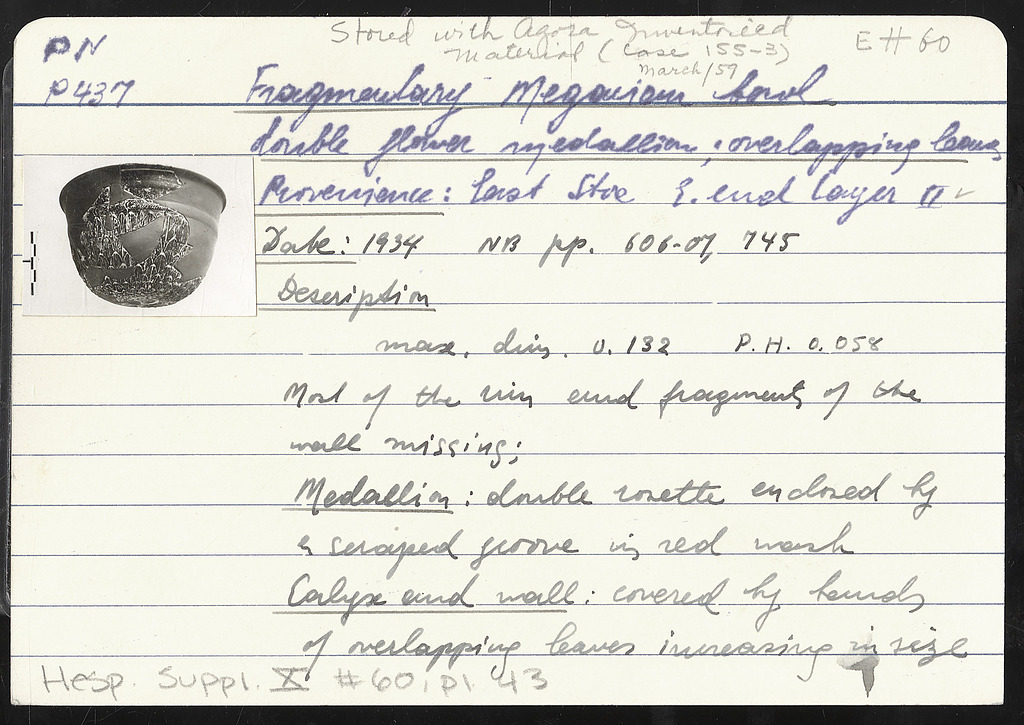 Stored with Agora Inventoried
Material (case 155-3)
March/59
E # 60
PN
P437
Fragmentary Megarian bowl
double flower medallion; overlapping leaves
Provenience: East Stoa E. end Layer II
Date: 1934 NB pp. 606-07, 745
Description
max. dim. 0.132 P.H. 0.058
Most of the rim and fragments of the
wall missing;
Medallion: double rosette enclosed by
a scraped groove in red wash
Calyx and wall: covered by bands
of overlapping leaves increasing in size
Hesp. Suppl. X #60, pl. 43